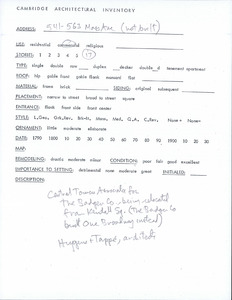 CAMBRIDGE ARCHITECTURAL INVENTORY
ADDRESS: 541-563 Mass Ave (not built)
USE: residential commercial religious
STORIES: 1 2 3 4 5 (17)
TYPE: single double row duplex decker double_d tenement apartment
ROOF: hip gable front gable flank mansard flat
MATERIAL: frame brick SIZING: original subsequent
PLACEMENT: narrow to street broad to street square
ENTRANCE: flank front side front center
STYLE: L.Geo, Gk.Rev, Brk-It, Mans, Med, Q.A, C.Rev, None
ORNAMENT: little moderate elaborate
DATE: 1790 1800 10 20 30 40 50 60 70 80 90 1900 10 20 30
MAP:
REMODELING: drastic moderate minor CONDITION: poor fair good excellent
IMPORTANCE TO SETTING: detrimental none moderate great INITIALED:
DISCRIPTION:
Central Tower Associates for
The Badger Co. being relocated
from Kendall Sq. (The Badger Co
built One Broadway instead)
Huygens + Tappé, architects